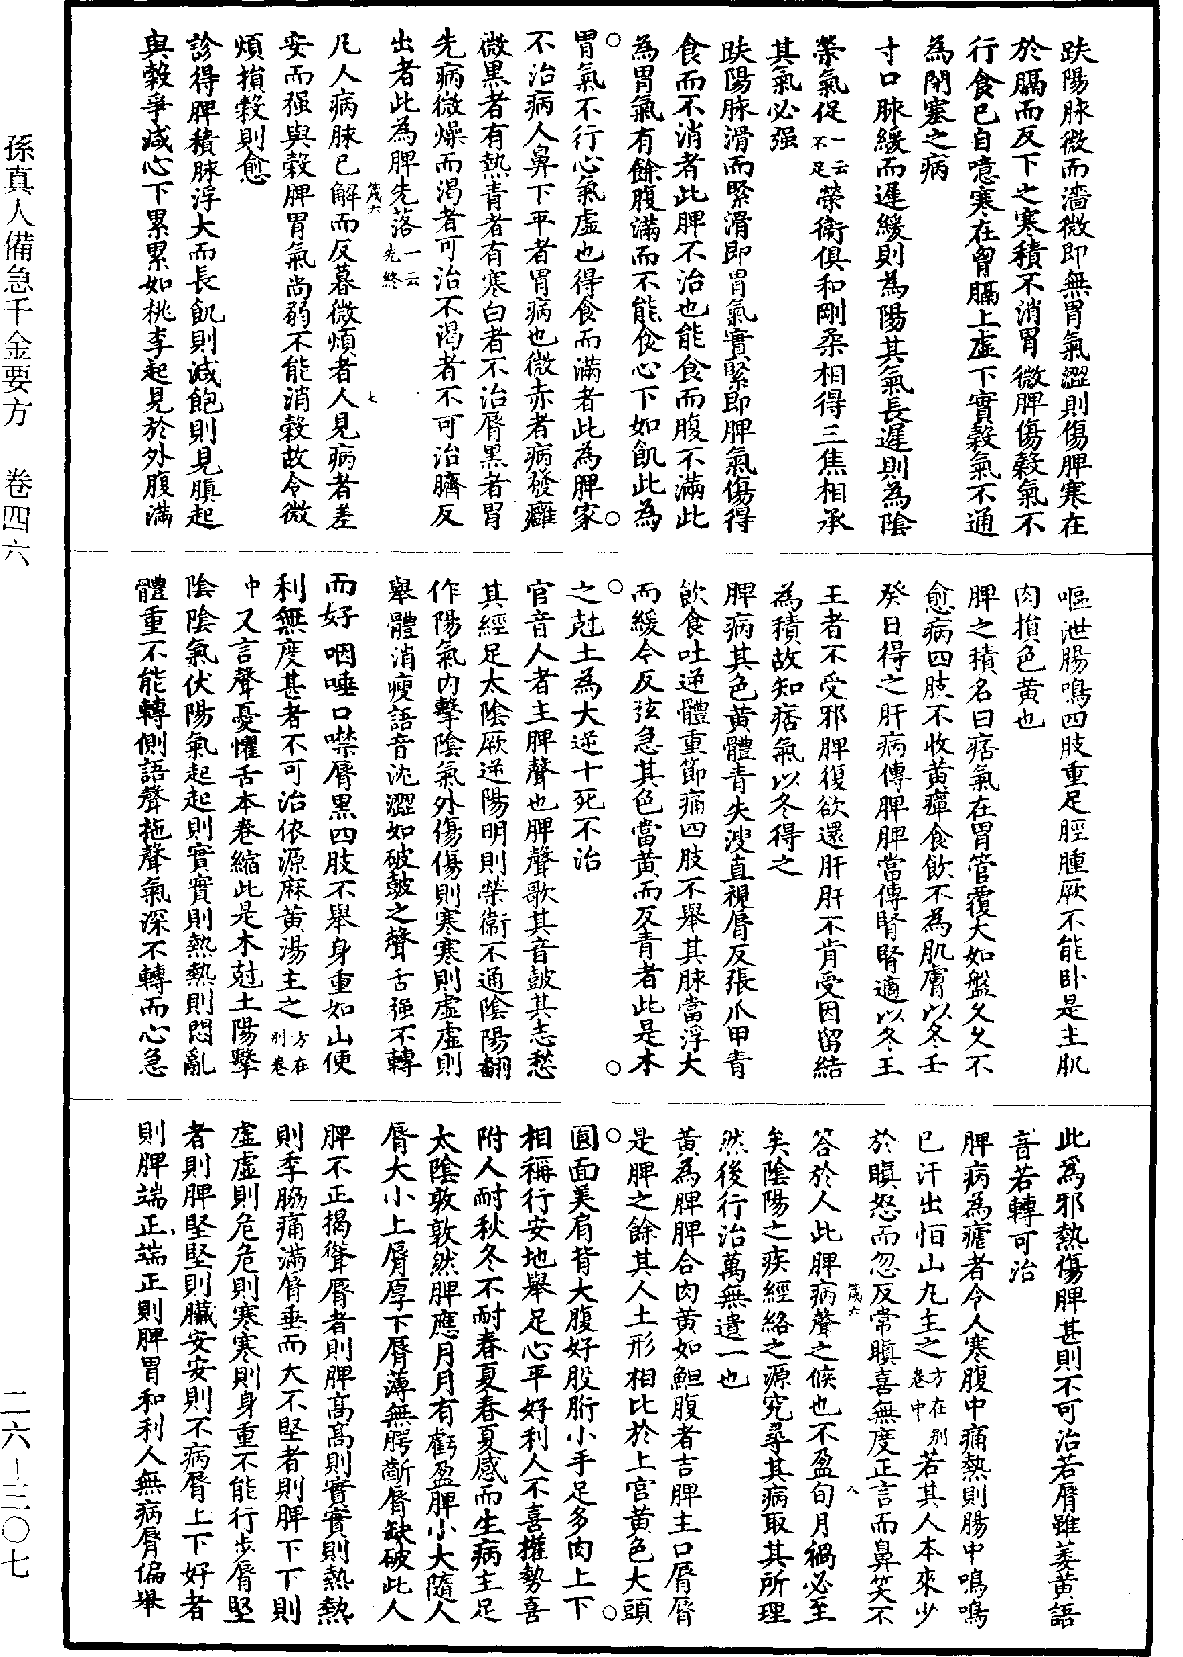 孫真人備急千金要方　卷四六
二六—三〇七
趺陽脉微而濇微即無胃氣澀則傷脾寒在
於膈而反下之寒積不消胃微脾傷穀氣不
行食已自噫寒在胷膈上虛下實穀氣不通
為閉塞之病
寸口脉緩而遲緩則為陽其氣長遲則為陰
榮氣促一云不足榮衞俱和剛柔相得三焦相承
其氣必强
趺陽脉滑而緊滑即胃氣實緊即脾氣傷得
食而不消者此脾不治也能食而腹不滿此
為胃氣有餘腹滿而不能食心下如飢此為
胃氣不行心氣虛也得食而滿者此為脾家
不治病人鼻下平者胃病也微赤者病發癰
微黑者有熱青者有寒白者不治脣黑者胃
先病微燥而渴者可治不渴者不可治臍反
出者此為脾先落一云先終
箴六　七
凡人病脉已解而反暮微煩者人見病者差
安而强與穀脾胃氣尚弱不能消穀故令微
煩損穀則愈
診得脾積脉浮大而長飢則減飽則見䐜起
與穀爭減心下累累如桃李起見於外腹滿
嘔泄腸鳴四肢重足脛腫厥不能卧是主肌
肉損色黃也
脾之積名曰痞氣在胃管覆大如盤久久不
愈病四肢不收黃癉食飲不為肌膚以冬壬
癸日得之肝病傳脾脾當傳腎腎適以冬王
王者不受邪脾復欲還肝肝不肯受因留結
為積故知痞氣以冬得之
脾病其色黃體青失溲直視脣反張爪甲青
飲食吐逆體重節痛四肢不舉其脉當浮大
而緩今反弦急其色當黃而反青者此是木
之尅土為大逆十死不治
官音人者主脾聲也脾聲歌其音鼓其志愁
其經足太陰厥逆陽明則榮衞不通陰陽翻
作陽氣内擊陰氣外傷傷則寒寒則虛虛則
舉體消瘦語音沈澀如破鼓之聲舌强不轉
而好咽唾口噤脣黑四肢不舉身重如山便
利無度甚者不可治依源麻黃湯主之方在別卷
中又言聲憂懼舌本卷縮此是木尅土陽擊
陰陰氣伏陽氣起起則實實則熱熱則悶亂
體重不能轉側語聲拖聲氣深不轉而心急
此為邪熱傷脾甚則不可治若脣雖萎黃語
音若轉可治
脾病為瘧者令人寒腹中痛熱則腸中鳴鳴
已汗出恒山丸主之方在別卷中若其人本來少
於瞋怒而忽反常瞋喜無度正言而鼻笑不
箴六　八
荅於人此脾病聲之候也不盈旬月禍必至
矣陰陽之疾經絡之源究尋其病取其所理
然後行治萬無遺一也
黃為脾脾合肉黃如䱇腹者吉脾主口脣脣
是脾之餘其人土形相比於上宮黃色大頭
圓面美肩背大腹好股胻小手足多肉上下
相稱行安地舉足心平好利人不喜權勢喜
附人耐秋冬不耐春夏春夏感而生病主足
太陰敦敦然脾應月月有虧盈脾小大隨人
脣大小上脣厚下脣薄無腭齗脣缺破此人
脾不正揭聳脣者則脾高高則實實則熱熱
則季脇痛滿脣垂而大不堅者則脾下下則
虛虛則危危則寒寒則身重不能行步脣堅
者則脾堅堅則臟安安則不病脣上下好者
則脾端正端正則脾胃和利人無病脣偏舉